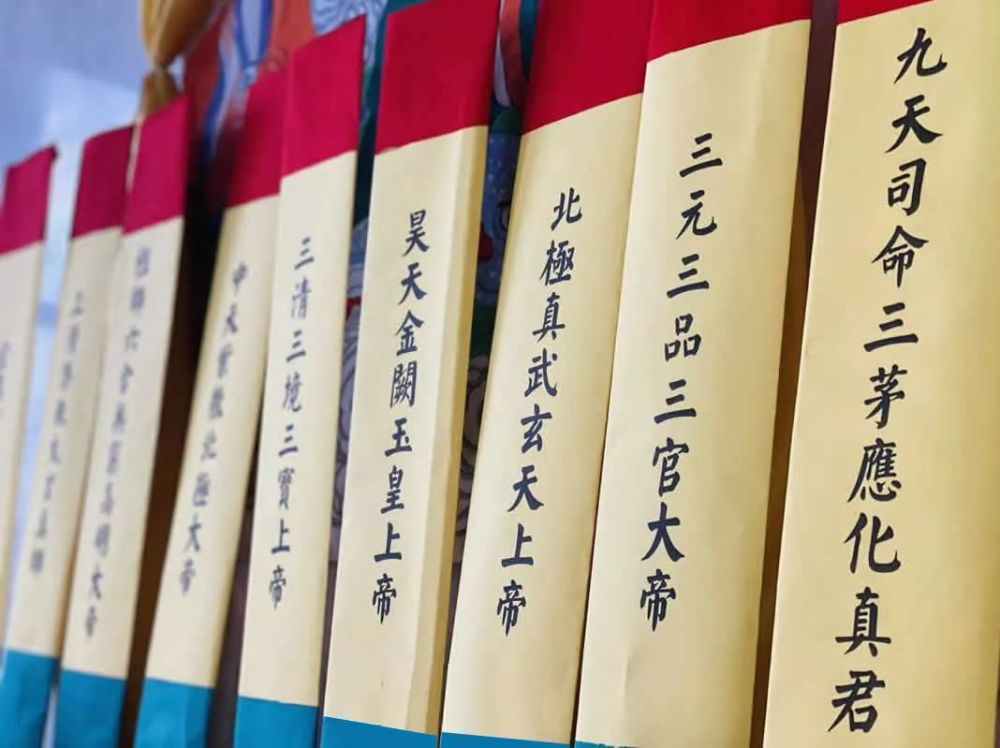 九天司命三茅應化真君
三元三品三官大帝
北極真武玄天上帝
昊天金闕玉皇上帝
三清三境三寶上帝
中天紫微北極大帝
師六合無窮高明大帝
上清